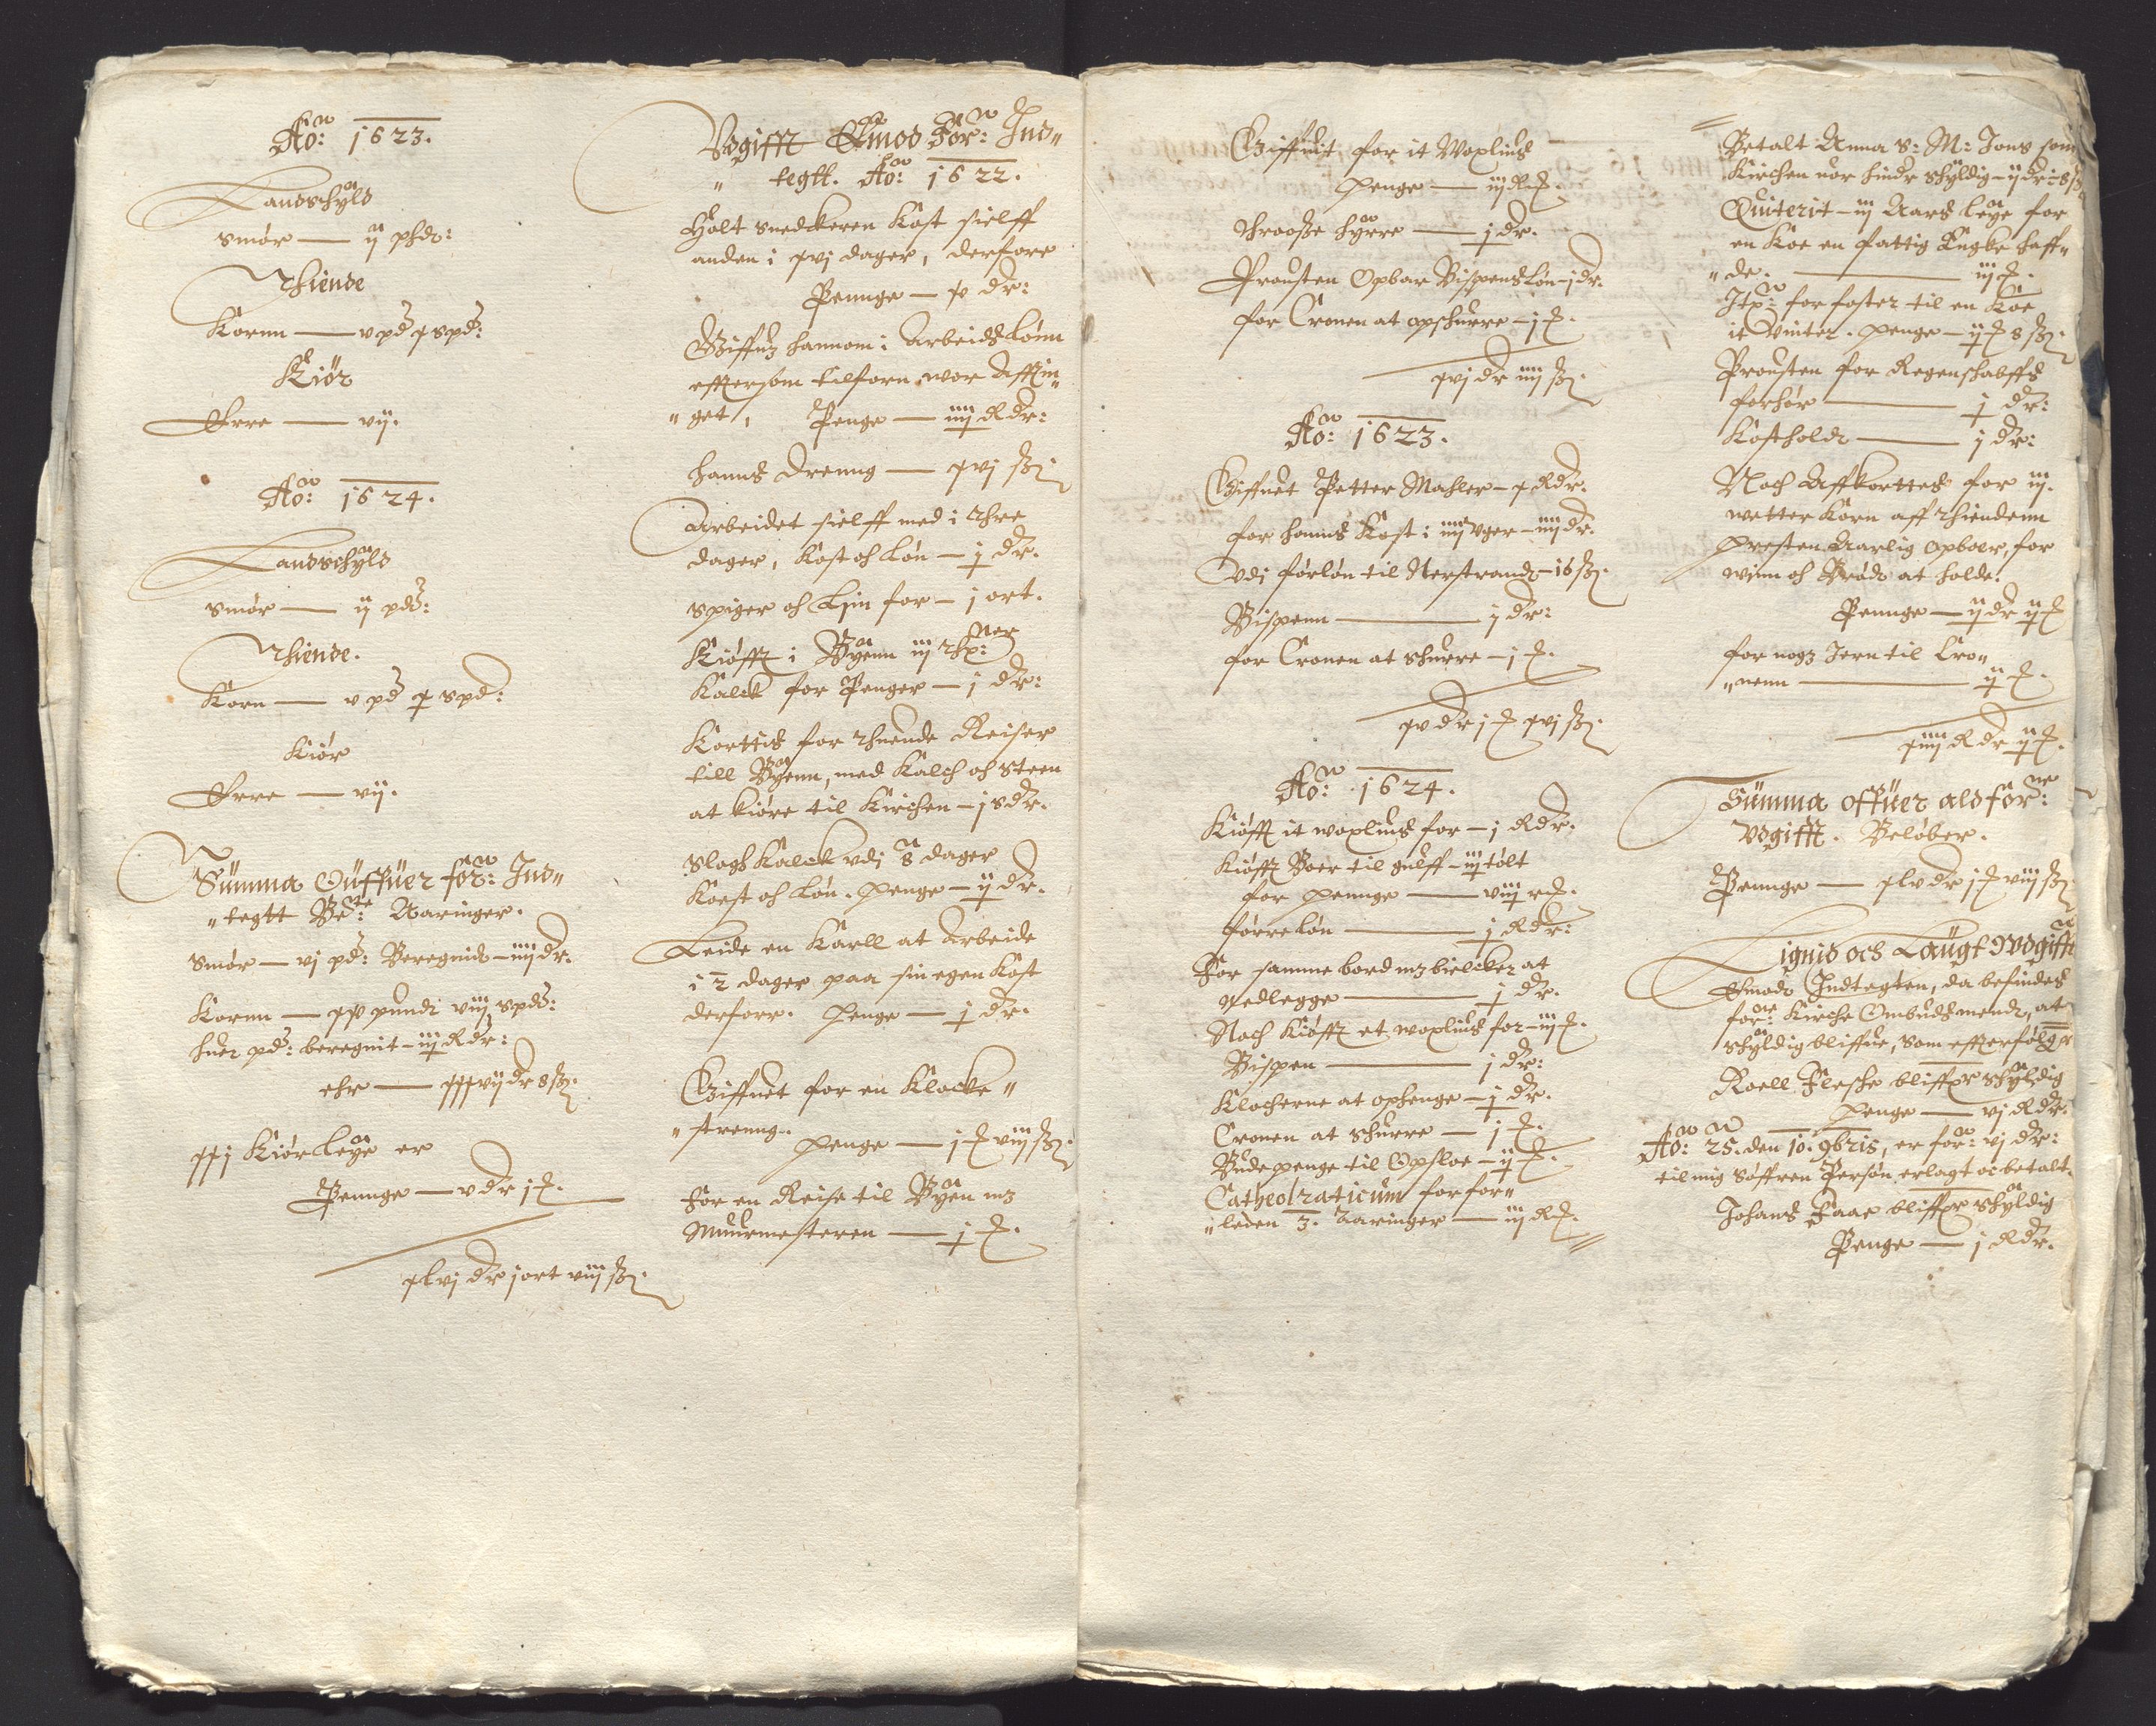 Ao: 1623.
Landschyld
Smør — ij phd:
Thiende
Kornn — v pd x spd:
Kiør
Erre — vij.
Ao: 1624.
Landschyld
Smør — ij pd:
Thiende.
Korn — v pd x spd:
Kiør
Erre — vij.
Summa Ouffuer for: Ind„
„tegtt Be: Aaringer.
Smør — vj pd: Beregnidt — iiij dr.
Kornn — xv pundt viij spd:
huer pd: beregnit — iij Rdr:
ehr — xxxvij dr 8 ß.
xxj Kiør leye er
Pennge — v dr j
xlvj dr j ort viij ß.
Vdgifft Emod For: Ind„
„ tegtt. Ao: 1622.
Holt Snedkeren Kost sielff
anden i xvj dager, derfore
Pennge — x dr:
Giffuz hannom i Arbeidslønn
effterson tilforn wor Affтin„
„get, Penge — iiij Rdr:
hanns Drenng — xvj ß.
Arbeidet sielff med i thre
dager, Kost och Løn — j dr.
Spiger och Liin for — j ort.
Kiøfft i Byenn iij thr:
Kalck for Penger — j dr:
Korttis for thuende Reiser
till Byenn, med Kalch och Steen
at kiøre til Kirchen — j dr.
Slogh Kalck vdi 8 dager
Koest och Løn. Penge — ij dr.
Leide en Karll at Arbeide
i 2 dager paa sin egen Kost
derforr. Penge — j dr.
Giffuet for en Klocke„
„strenng. Penge — j viij ß.
For en Reise til Byen mz
Muurmesteren — j
Giffuit for it Voxliuus
Penge — iij
Proosze hyrre — j dr.
Prousten Opbar Bispens Løn — j dr.
for Cronen at opskurre — j
xvj dr iiij ß.
Ao: 1623.
Giffuet Petter Mahler — x Rdr.
for hanns Kost i iiij Vger — iiij dr.
Vdi førløn til Nerstrandt — 16 ß.
Bispenn — j dr:
for Cronen at skurre — j
xv dr j xvj ß.
Ao: 1624.
Kiøfft it woxliuus for — j Rdr.
Kiøfft Boer til gulff — iij tolt
for pennge — viij
førreløn — j Rdr:
For samme bord mz bielcker at
nedlegge — j dr.
Noch Kiøfft et woxliuus for — iij
Bispen — j dr:
Klocherne at ophenge — j dr.
Cronen at skurre — j
Bude penge til Opsloe — ij
Catheolraticum for for„
„leden 3. Aaringer — iij
Betalt Anna S: M: Jons som
Kirchen uor hindr skyldig — ij dr
Quiterit — iij Aars leye for
en Koe en fattig Encke haff„
„de. — iij
Itx: for foster til en Koe
it Vinter. Penge — ij 8 ß.
Prousten for Regenschabffs
forhør — j dr:
Kostholdt — j dr:
Noch Affkorttes for iij.
wetter Korn aff thiendenn
presten Aarlig opboer, for
wiin och Brødt at holde.
Pennge — ij dr ij
for nogz Jern til Cro„
„nenn — ij
xiiij Rdr ij
Summa offuer ald for:
Vdgifft. Beløber.
Pennge — xlv dr j viij ß.
Lignid och Laugt Vdgifft
Emodt Indtegten, da befindes
for: Kirche Ombudsmendt, at
skyldig bliffue, som effterfølger
Roell Flesche bliffer skyldig
Penge — vj Rdr.
Ao: 25. den 10. 9bris, er for: vj dr:
til mig Søffren Persøn erlagt oc betalt.
Johans Faae bliffer skyldig
Penge — j Rdr.